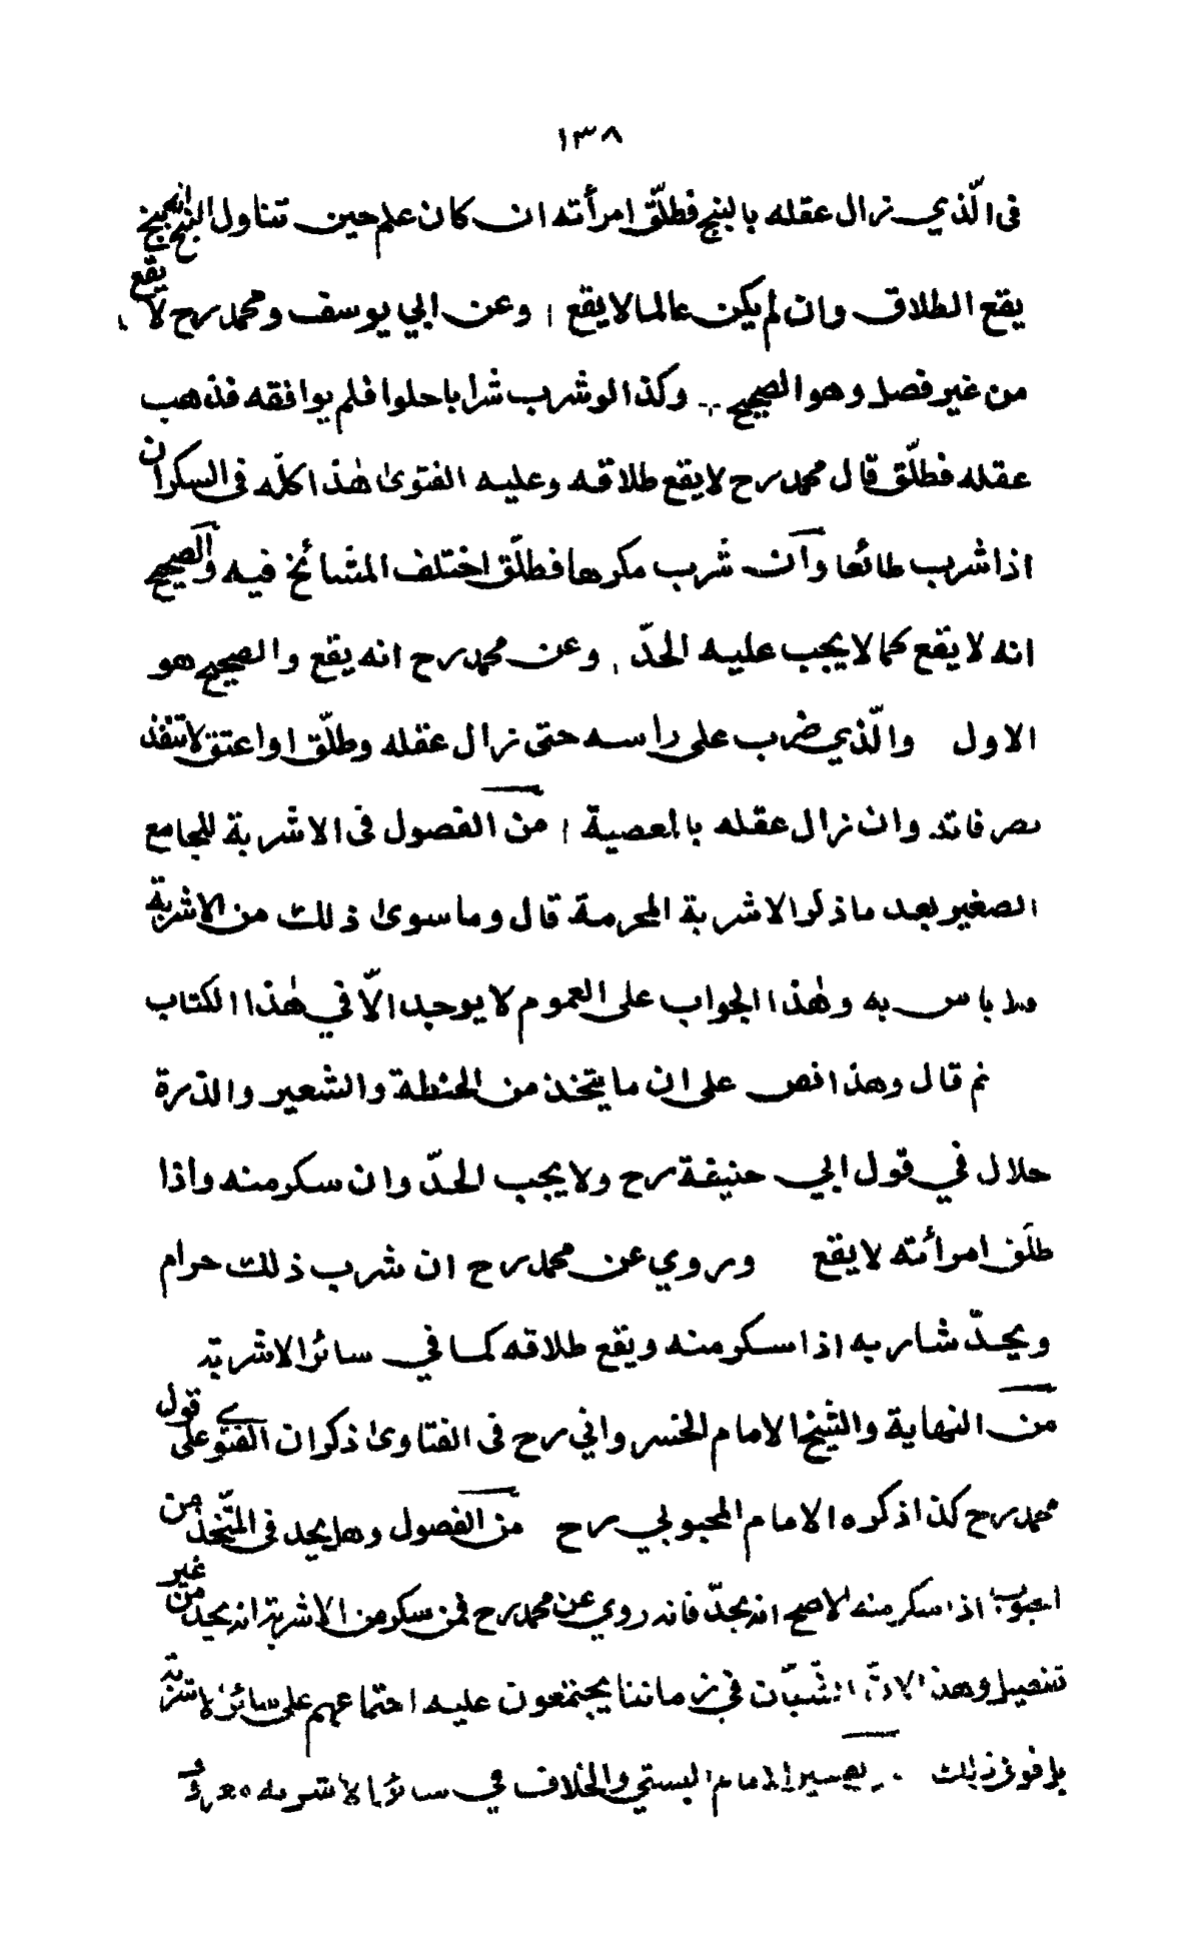 ١٣٨
فى الّذي زال عقله بالبنج فطلّق امرأته ان كان علم حين تناول البنج انه بنج
يقع الطلاق وان لم يكن عالما لا يقع ؛ وعن ابي يوسف ومحمد رح لا يقع
من غير فصل وهو الصحيح .. وكذا لو شرب شرابا حلوا فلم يوافقه فذهب
عقله فطلّق قال محمد رح لا يقع طلاقه وعليه الفتوىٰ هٰذا كلّه فى السكران
اذا شرب طائعا وآن شرب مكرها فطلّق اختلف المشائخ فيه والصحيح
انه لا يقع كما لا يجب عليه الحدّ ، وعن محمد رح انه يقع والصحيح هو
الاول والّذي ضرب على راسه حتى زال عقله وطلّق او اعتق لا تنفذ
تصرفاته وان زال عقله بالمعصية ؛ من الفصول فى الاشربة للجامع
الصغير بعد ما ذكر الاشربة المحرمة قال وما سوىٰ ذلك من الاشربة
فلا باس به وهٰذا الجواب على العموم لا يوجد الّا في هٰذا الكتاب
ثم قال وهذا نص على ان ما يتخذ من الحنطة والشعير والذرة
حلال في قول ابي حنيفة رح ولا يجب الحدّ وان سكر منه واذا
طلّق امرأته لا يقع وروي عن محمد رح ان شرب ذلك حرام
ويحدّ شاربه اذا سكر منه ويقع طلاقه كما في سائر الاشربة
من النهاية والشيخ الامام الخسرواني رح فى الفتاوىٰ ذكر ان الفتوى على قول
محمد رح كذا ذكره الامام المحبوبي رح من الفصول وهل يحد فى المتّخذ من
الحبوب اذا سكر منه الاصح انه يحدّ فانه روي عن محمد رح فمن سكر من الاشربة انه يحد من غير
تفصيل وهذا لانّ الشبّان في زماننا يجتمعون عليه اجتماعهم على سائر الاشربة
بل فوق ذلك . تفسير الامام البستي والخلاف في سائر الاشربة